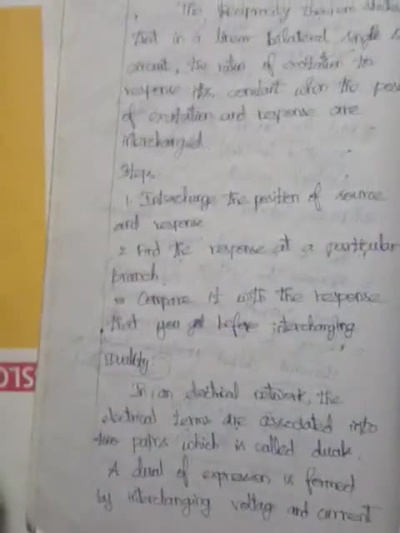 The Reciprocity theorem states
that in a linear bilateral single s
circuit, the ratio of excitation to
response is constant when the pos
of excitation and response are
interchanged.
Steps
1. Interchange the position of source
and response
2. Find the response at a particular
branch.
Compare it with the response
that you get before interchanging
Duality
In an electrical network, the
electrical terms are associated into
two pairs which is called duals.
A dual of expression is formed
by interchanging voltage and current
OLS